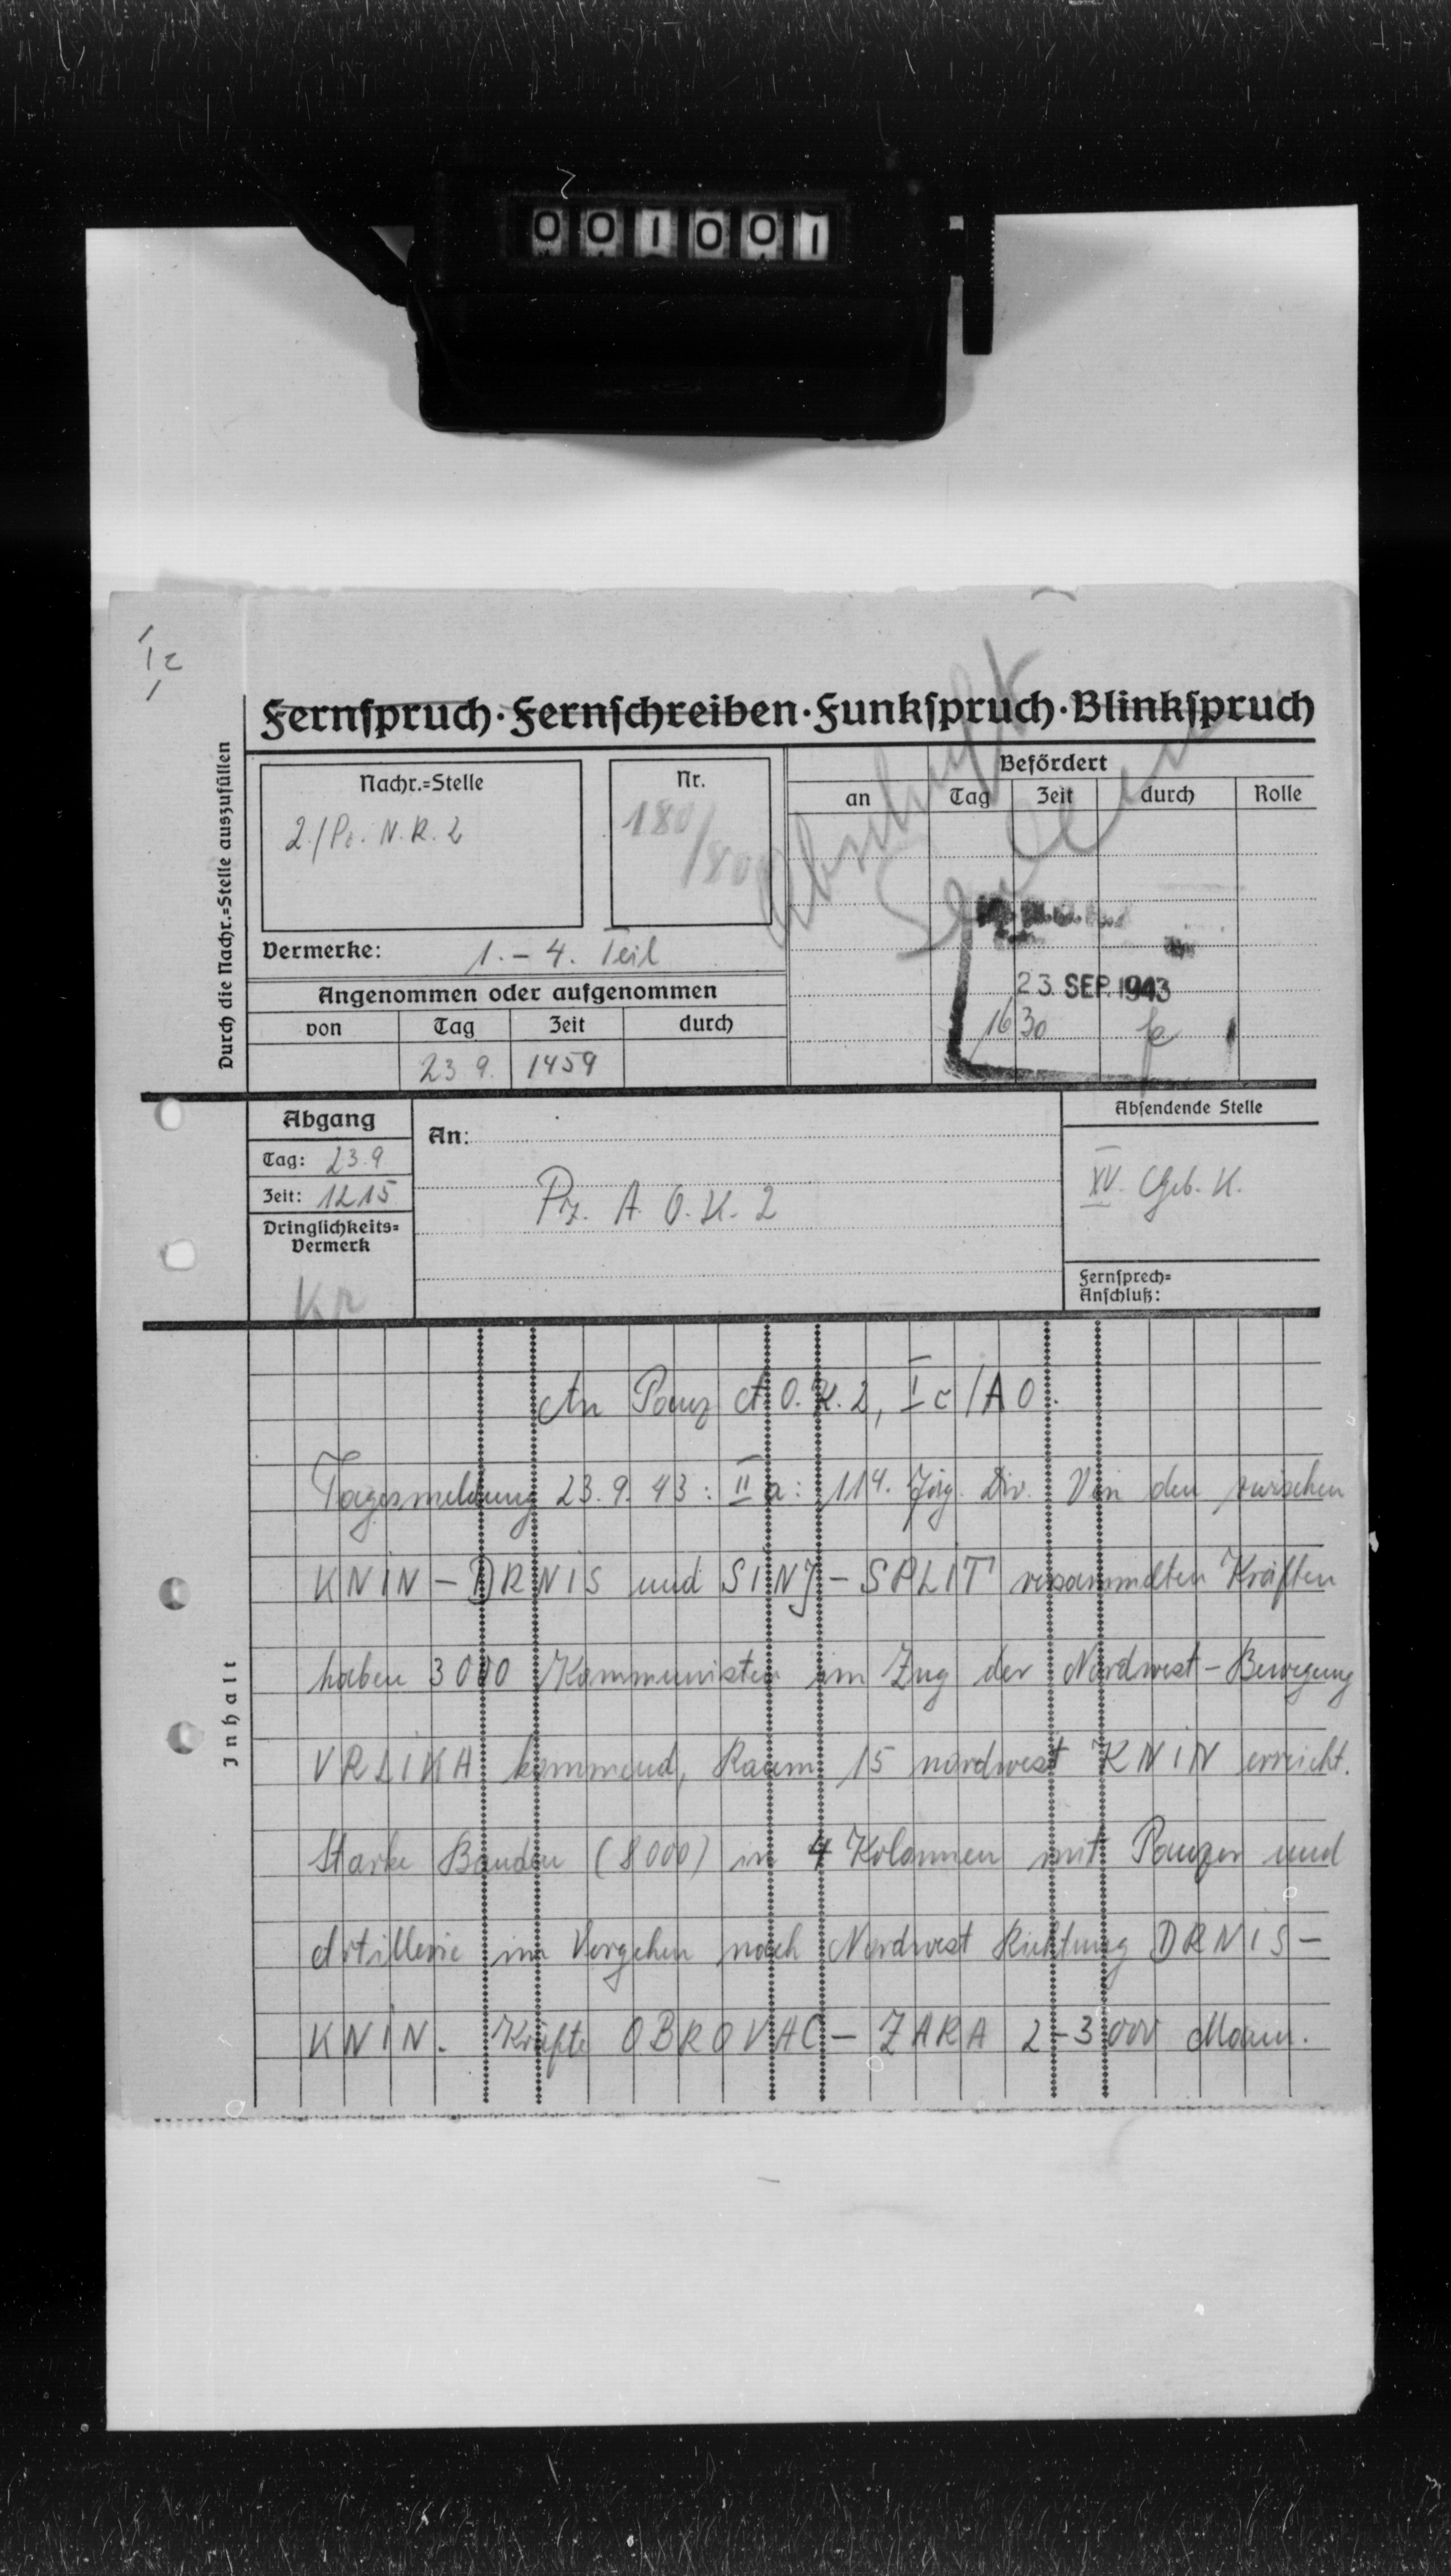 001001
Ic
Fernspruch · Fernschreiben · Funkspruch · Blinkspruch
Durch die Nachr.=Stelle auszufüllen
Nachr.=Stelle
2./Pz. N. R. 2
Nr.
180/
Befördert
an Tag Zeit durch Rolle
Abschrift
Vermerke: 1. - 4. Teil
Angenommen oder aufgenommen
von Tag Zeit durch
23 9. 1459
23. SEP. 1943
16 30
Abgang
Tag: 23.9
Zeit: 1215
Dringlichkeits=
Vermerk
KR
An:
Pz. A. O. K. 2
Absendende Stelle
XV. Geb. K.
Fernsprech=
Anschluß:
Inhalt
An Panz A. O. K. 2, Ic/AO.
Tagesmeldung 23. 9. 43: II a: 114. Jäg. Div. Von den zwischen
KNIN - DRNIS und SINJ - SPLIT versammelten Kräften
haben 3000 Kommunisten im Zug der Nordwest - Bewegung
VRLIKA kommend, Raum 15 nordwest KNIN erreicht.
Starke Banden (8000) in 4 Kolonnen mit Panzer und
Artillerie im Vorgehen nach Nordwest Richtung DRNIS -
KNIN. Kräfte OBROVAC - ZARA 2-3000 Mann.